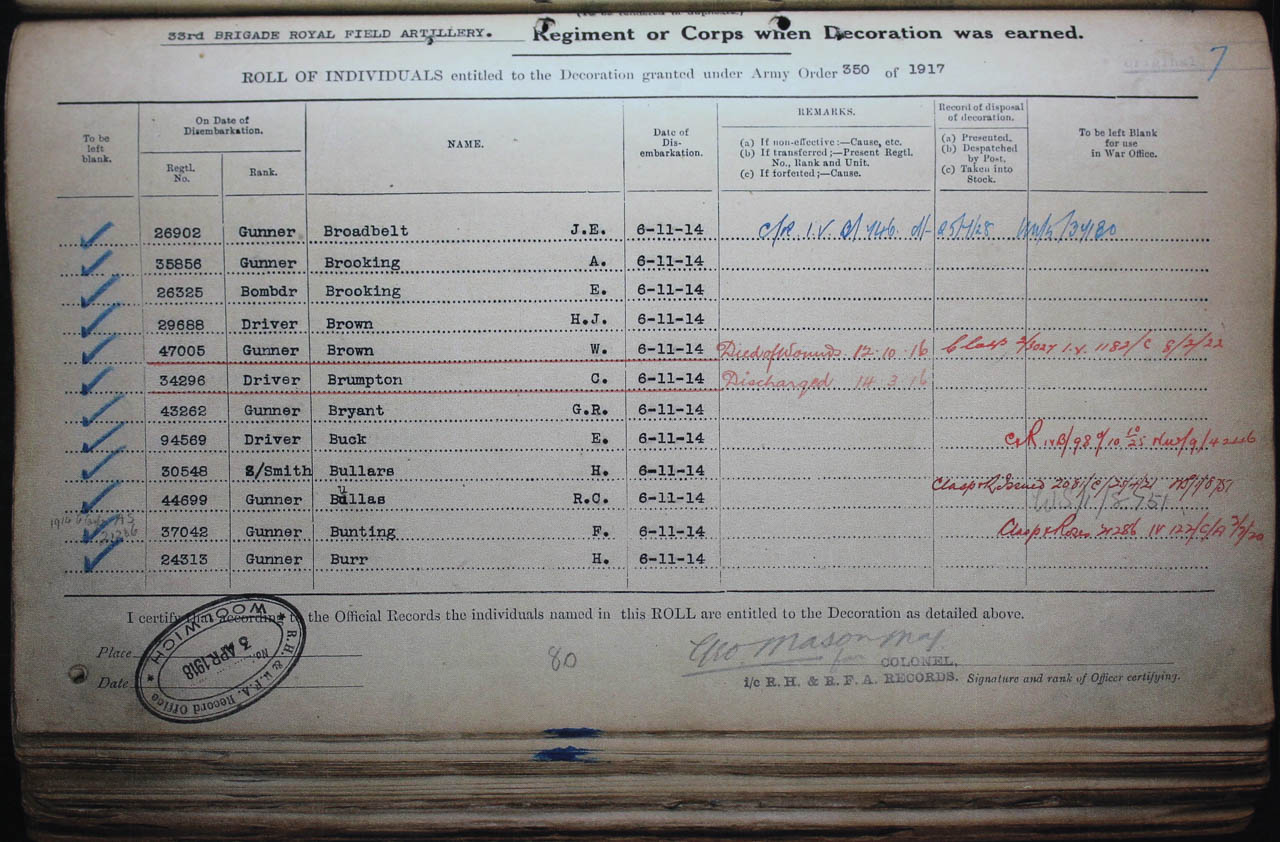 33rd BRIGADE ROYAL FIELD ARTILLERY. Regiment or Corps when Decoration was earned.
Original 7
ROLL OF INDIVIDUALS entitled to the Decoration granted under Army Order 350 of 1917
To be left blank. On Date of Disembarkation. Regtl. No. Rank. NAME. Date of Dis-embarkation. REMARKS. (a) If non-effective:—Cause, etc. (b) If transferred;—Present Regtl. No., Rank and Unit. (c) If forfeited;—Cause. Record of disposal of decoration. (a) Presented. (b) Despatched by Post. (c) Taken into Stock. To be left Blank for use in War Office.
26902 Gunner Broadbelt J.E. 6-11-14
35856 Gunner Brooking A. 6-11-14
26325 Bombdr Brooking E. 6-11-14
29688 Driver Brown H.J. 6-11-14
47005 Gunner Brown W. 6-11-14 Died of Wounds 12.10.16 Clasp I.V. 1182/C 8/2/22
34296 Driver Brumpton C. 6-11-14 Discharged 14 3 16
43262 Gunner Bryant G.R. 6-11-14
94569 Driver Buck E. 6-11-14
30548 S/Smith Bullars H. 6-11-14
44699 Gunner Bullas R.C. 6-11-14 Clasp & R. Issued
37042 Gunner Bunting F. 6-11-14 Clasp & Roses 21286 IV 122/C/A
24313 Gunner Burr H. 6-11-14
I certify that according to the Official Records the individuals named in this ROLL are entitled to the Decoration as detailed above.
Place
Date
R.H. & R.F.A. Record Office WOOLWICH No. 3 APR.1918
80
Geo. Mason Maj
for COLONEL,
i/c R.H. & R.F.A. RECORDS. Signature and rank of Officer certifying.